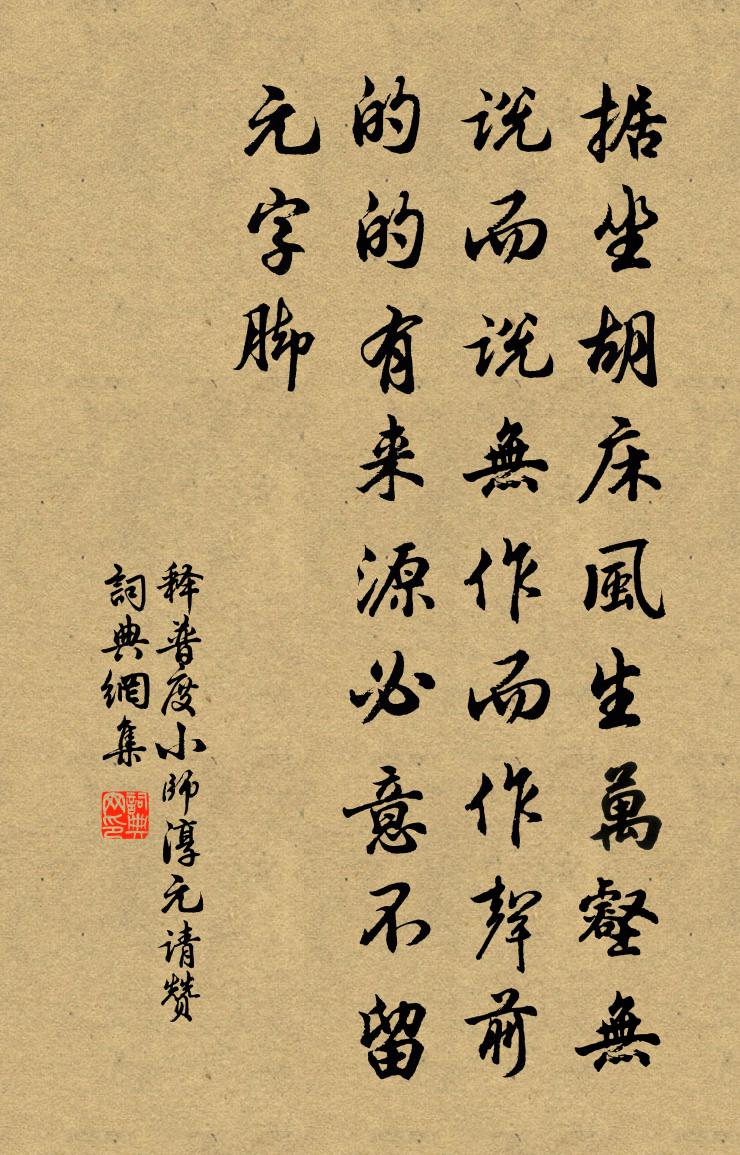 据坐胡床風生萬壑無
説而説無作而作聲前
的的有来源必意不留
元字脚
释普度小師淳元请赞
詞典網集
詞典网印